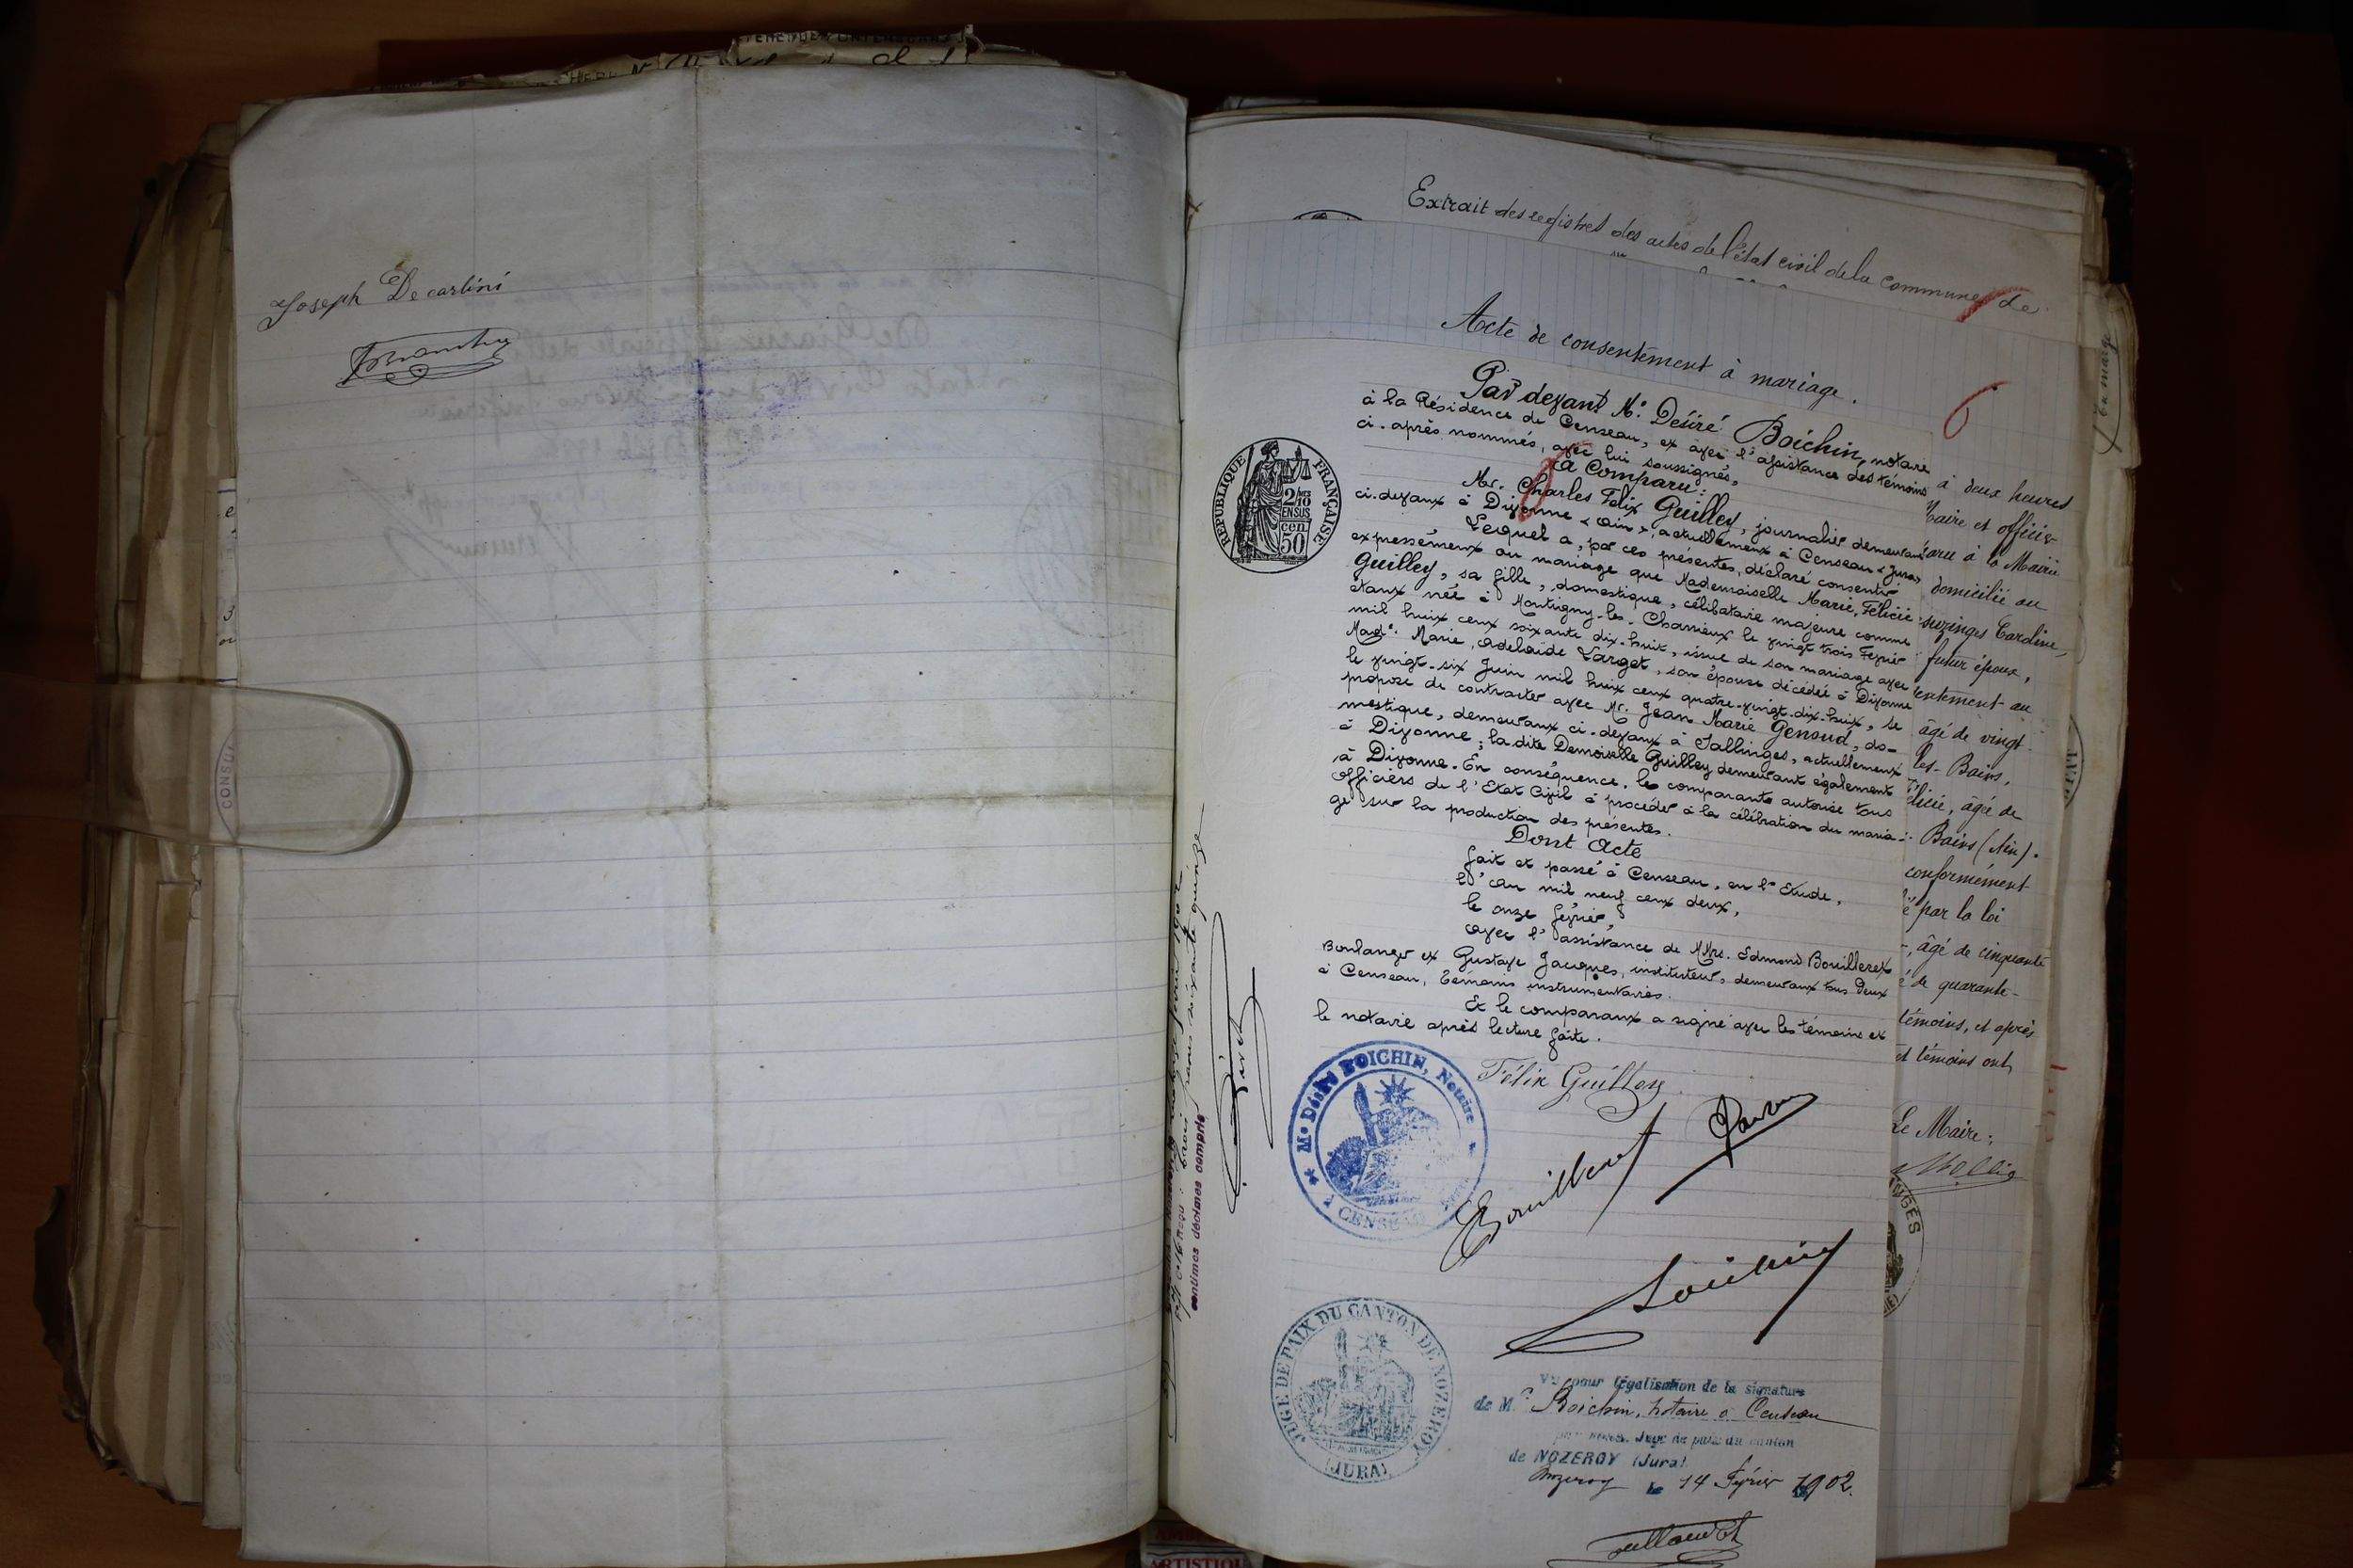 Joseph Decarlini
Extrait des registres des actes de l'état civil de la commune de
Acte de consentement à mariage.
6
Par devant Me. Désiré Boichin, notaire
à la Résidence de Censeau, et avec l'assistance des témoins
ci-après nommés, avec lui soussignés,
a Comparu:
Mr. Charles Félix Guilley, journalier demeurant
ci-devant à Divonne « Ain », actuellement à Censeau « Jura »
Lequel a, par ces présentes, déclaré consentir
expressément au mariage que Mademoiselle Marie, Félicie
Guilley, sa fille, domestique, célibataire majeure comme
étant née à Montigny-les-
le vingt trois Février
mil huit cent soixante dix-huit, issue de son mariage avec
Made. Marie, Adelaïde Larget, son épouse décédée à Divonne
le vingt-six Juin mil huit cent quatre-vingt-dix-huit, se
propose de contracter avec Mr. Jean Marie Genoud, do-
mestique, demeurant ci-devant à Sallinges, actuellement
à Divonne; la dite Demoiselle Guilley demeurant également
à Divonne. En conséquence, le comparant autorise tous
officiers de l'Etat Civil à procéder à la célébration du maria-
ge sur la production des présentes.
Dont Acte
fait et passé à Censeau, en l'Etude,
L'an mil neuf cent deux,
le onze février
avec l'assistance de MMrs. Edmond Bouilleret
Boulanger et Gustave Jacques, instituteur, demeurant tous deux
à Censeau, témoins instrumentaires.
Et le comparant a signé avec les témoins et
le notaire après lecture faite.
Félix Guilley
Bouilleret
REPUBLIQUE FRANÇAISE
2/10
EN SUS
cen
50
Me Désiré BOICHIN, Notaire
à CENSEAU
JUGE DE PAIX DU CANTON DE NOZEROY
(JURA)
Vu pour légalisation de la signature
de Me Boichin, notaire à Censeau
par nous, Juge de paix du canton
de NOZEROY (Jura)
Nozeroy le 14 Février 1902.
soixante quinze
centimes décimes compris
à deux heures
Maire et officier
à la Mairie
domicilié au
futur époux,
âgé de vingt
les-Bains,
âgée de
Bains (Ain).
conformément
par la loi
âgé de cinquante
de quarante-
témoins, et après
et témoins ont
Le Maire:
En marge
CONSUL